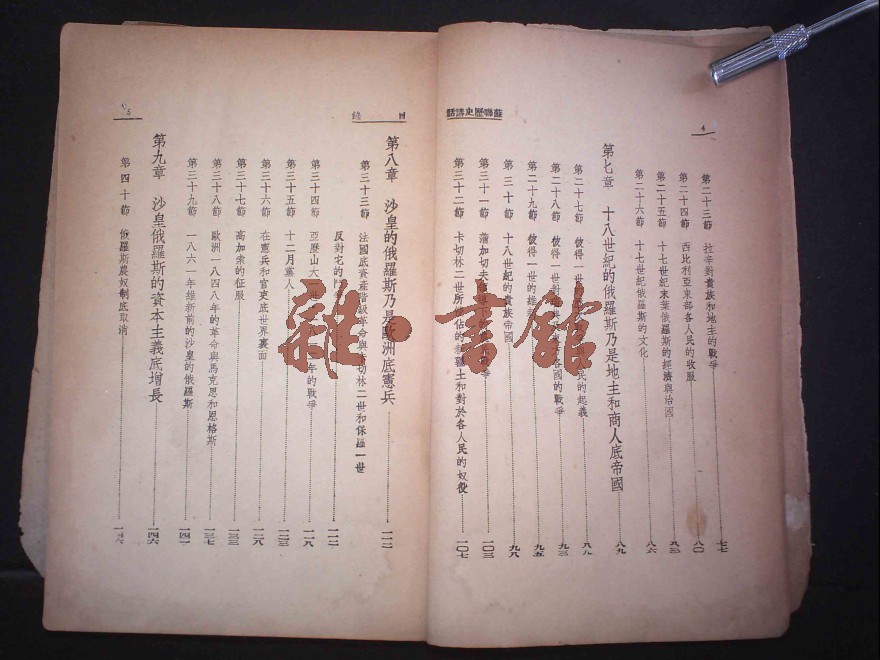 蘇聯歷史講話
4
第二十三節 拉辛對貴族和地主的戰爭 七七
第二十四節 西比利亞東部各人民的收服 八〇
第二十五節 十七世紀末葉俄羅斯的經濟與治國
第二十六節 十七世紀俄羅斯的文化 八六
第七章 十八世紀的俄羅斯乃是地主和商人底帝國 八九
第二十七節 彼得一世的 人民的起義 八九
第二十八節 彼得一世的對 各國的戰爭 九三
第二十九節 彼得一世的維新 九五
第三十節 十八世紀的貴族帝國 九八
第三十一節 蒲加切夫領導下的 戰爭 一〇三
第三十二節 卡切林二世所侵佔的 土和對於各人民的奴役 一〇七
目錄
5
第八章 沙皇的俄羅斯乃是歐洲底憲兵 一一二
第三十三節 法國底資產階級革命與 切林二世和保羅一世
反對它的鬥爭 一一二
第三十四節 亞歷山大一世 一八一二年的戰爭 一一八
第三十五節 十二月黨人 一二三
第三十六節 在憲兵和官吏底世界裏面 一二八
第三十七節 高加索的征服 一三三
第三十八節 歐洲一八四八年的革命與馬克思和恩格斯 一三七
第三十九節 一八六一年維新前的沙皇的俄羅斯 一四一
第九章 沙皇俄羅斯的資本主義底增長 一四六
第四十節 俄羅斯農奴制底取消 一四六
雜·書館